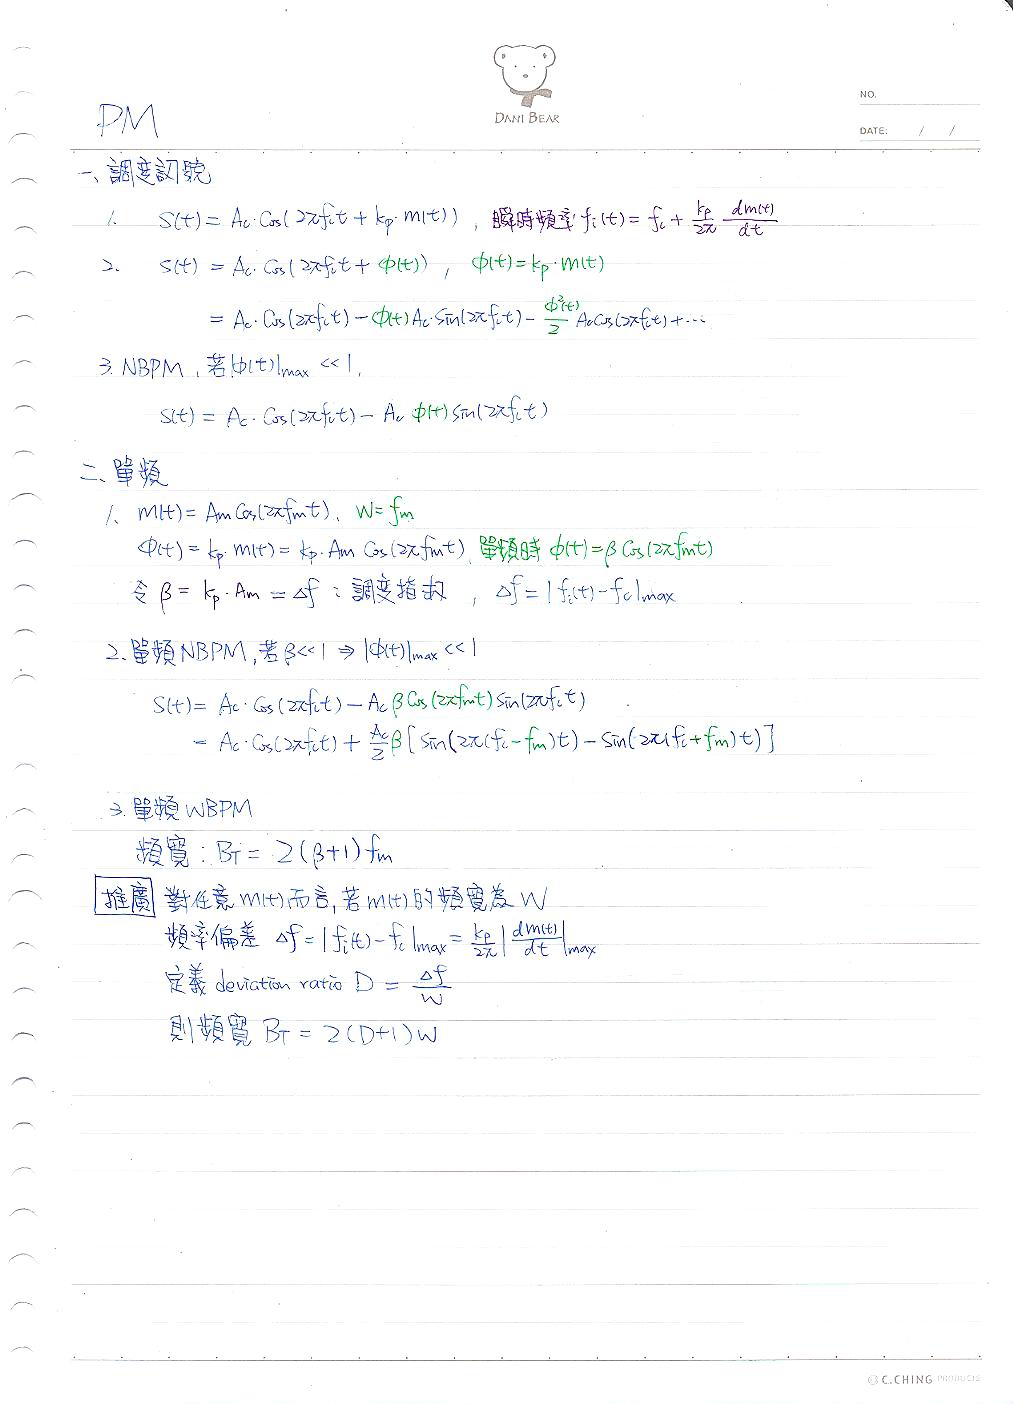 DANI BEAR
NO.
DATE: / /
PM
一、調变訊號
1. S(t) = Ac·Cos(2πfct + kp·m(t)), 瞬時頻率 fi(t) = fc + kp/2π dm(t)/dt
2. S(t) = Ac·Cos(2πfct + φ(t)), φ(t) = kp·m(t)
= Ac·Cos(2πfct) - φ(t)Ac·Sin(2πfct) - φ²(t)/2 AcCos(2πfct) + ...
3. NBPM, 若|φ(t)|max << 1,
S(t) = Ac·Cos(2πfct) - Ac φ(t) Sin(2πfct)
二、單頻
1. m(t) = Am Cos(2πfmt), W = fm
φ(t) = kp·m(t) = kp·Am Cos(2πfmt), 單頻時 φ(t) = β Cos(2πfmt)
令 β = kp·Am = Δf : 調变指数, Δf = |fi(t) - fc|max
2. 單頻NBPM, 若β<<1 ⇒ |φ(t)|max << 1
S(t) = Ac·Cos(2πfct) - Ac βCos(2πfmt) Sin(2πfct)
= Ac·Cos(2πfct) + Ac/2 β[Sin(2π(fc-fm)t) - Sin(2π(fc+fm)t)]
3. 單頻WBPM
頻寬 : BT = 2(β+1)fm
推廣 對任意m(t)而言, 若m(t)的頻寬為 W
頻率偏差 Δf = |fi(t) - fc|max = kp/2π |dm(t)/dt|max
定義 deviation ratio D = Δf/W
則頻寬 BT = 2(D+1)W
C.CHING PRODUCTS